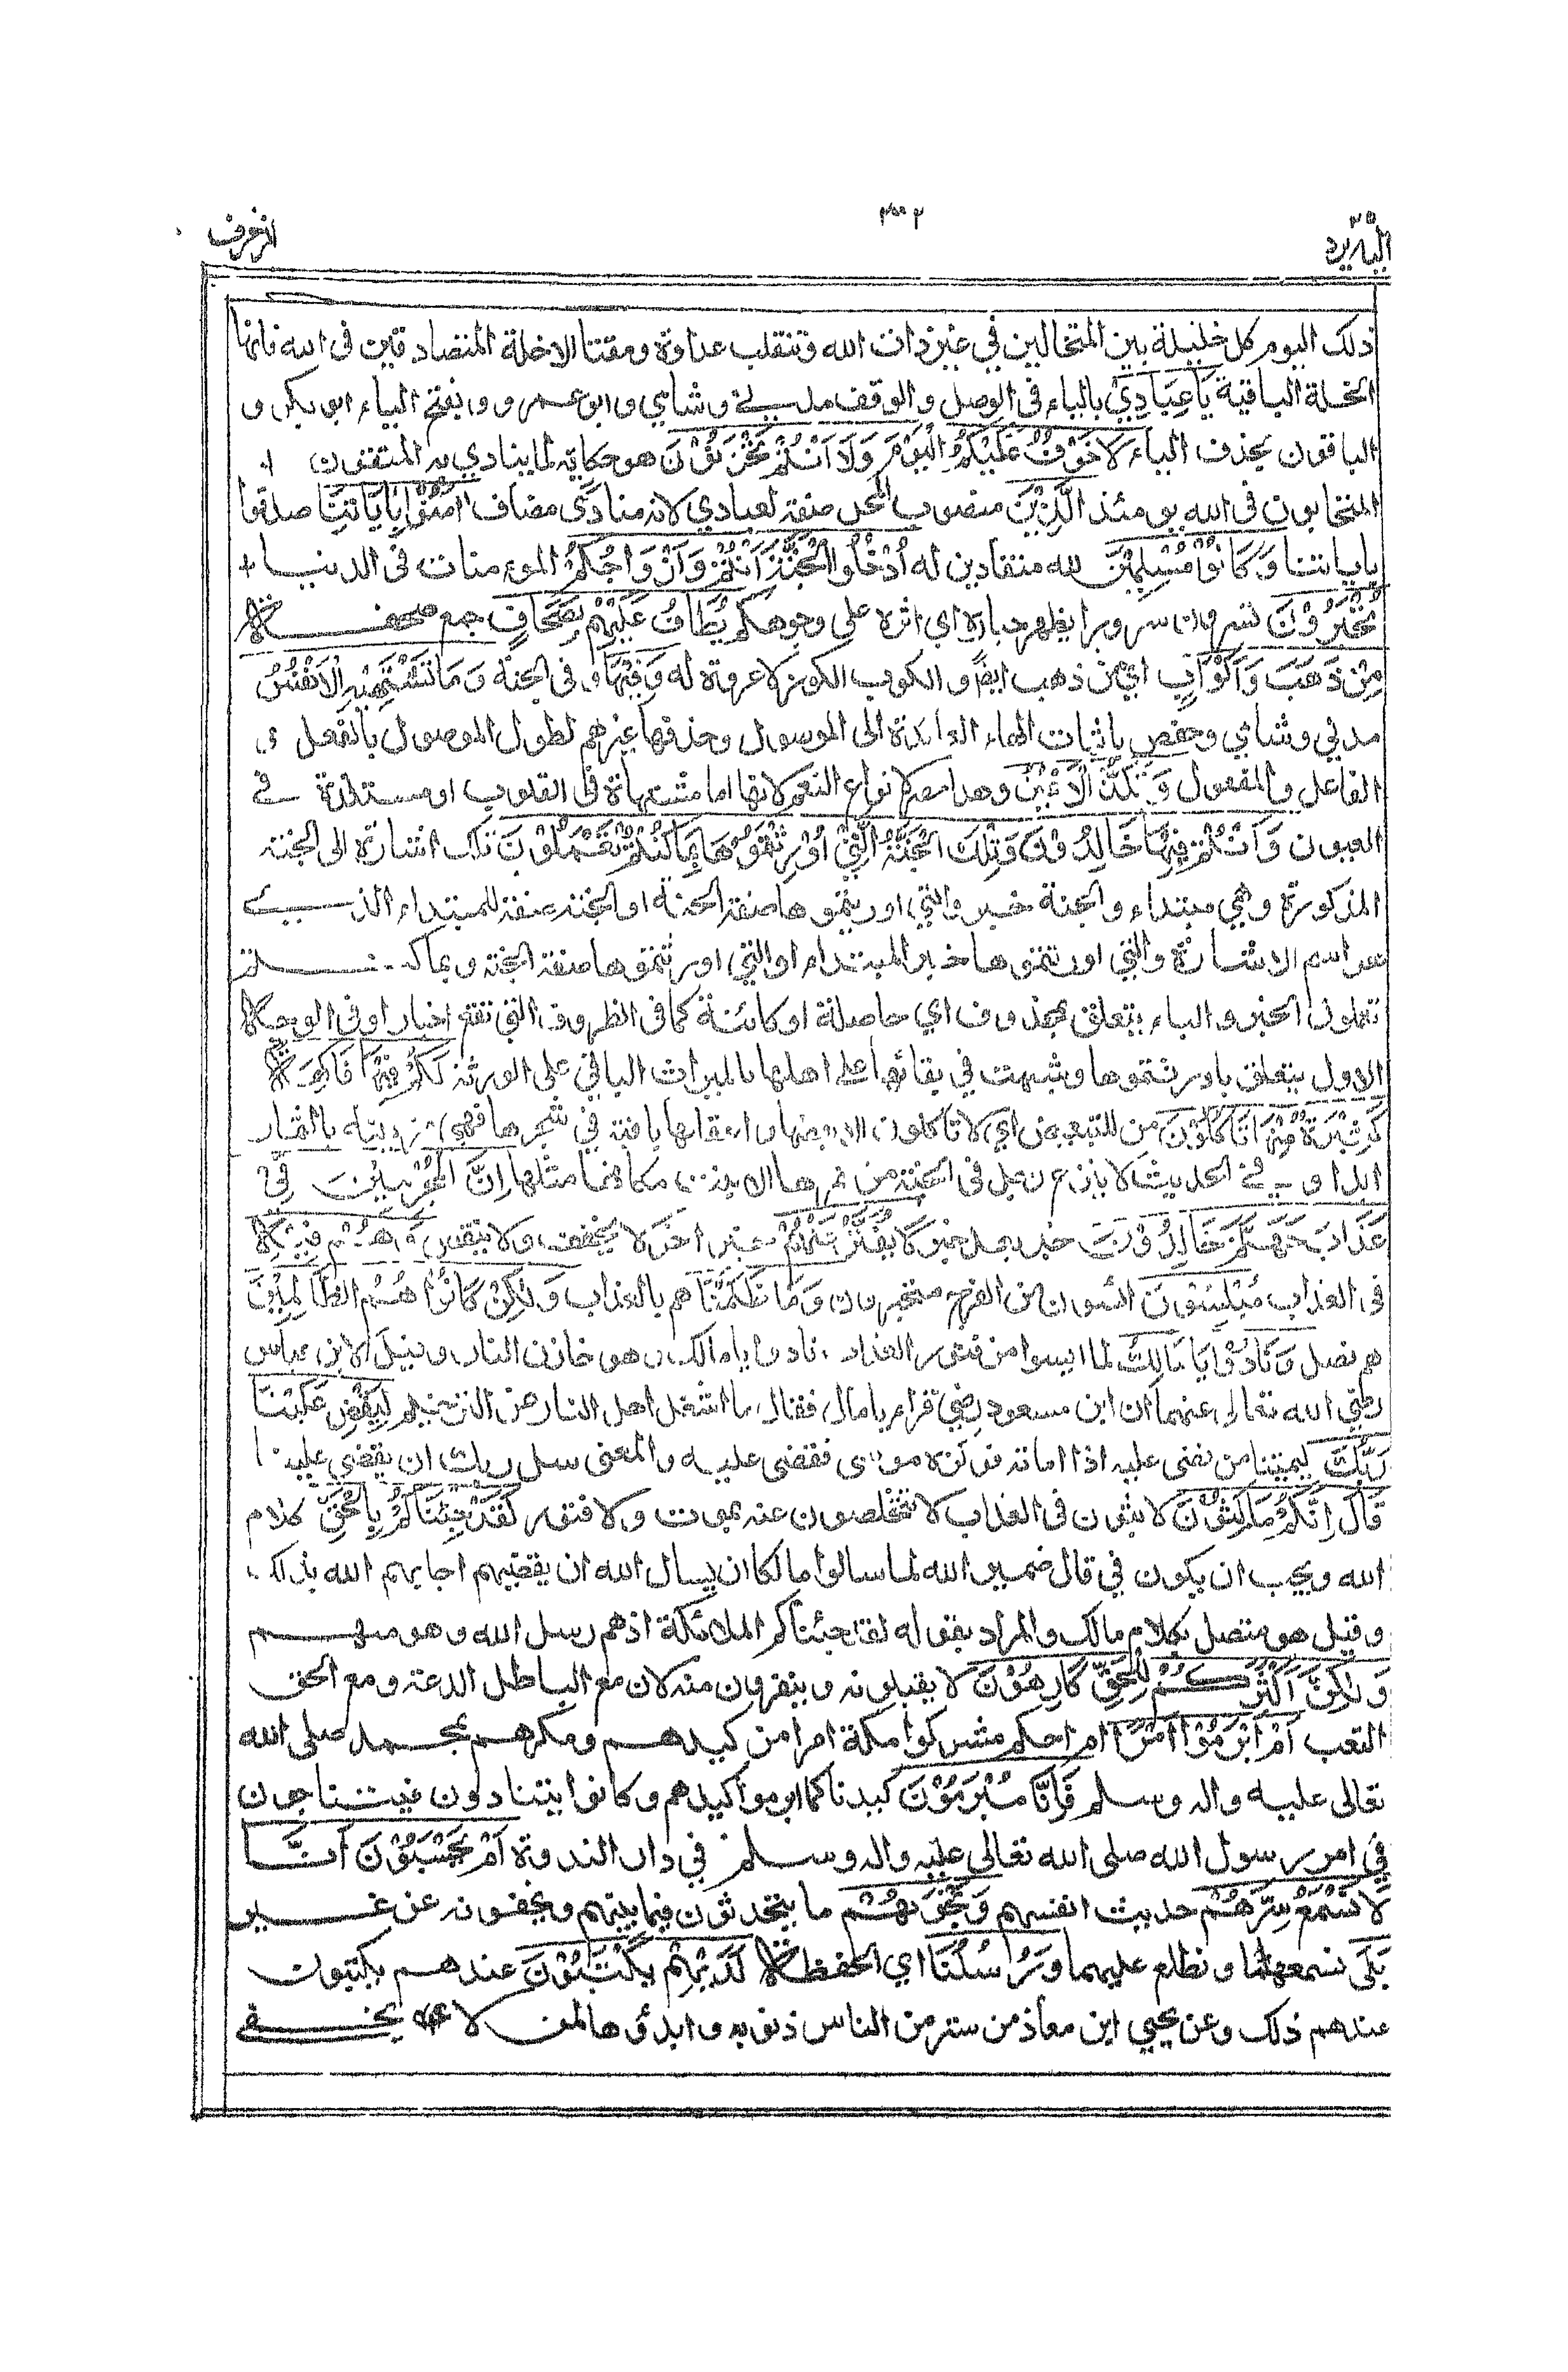 اليه يرد ٢٥
٣٥٢
الزخرف
ذلك اليوم كل خليلة بين المتخالين في غير ذات الله وتنقلب عداوة ومقتا الاخلة المتصادقين فى الله فانها
الخلة الباقية يَا عِبَادِيْ بالياء فى الوصل والوقف مدني وشامي وابو عمرو وبفتح الياء ابو بكر و
الباقون بحذف الياء لَا خَوْفٌ عَلَيْكُمُ الْيَوْمَ وَلَا اَنْتُمْ تَحْزَنُوْنَ هو حكاية لما ينادي به المتقون
المتحابون فى الله يومئذ الَّذِيْنَ منصوب المحل صفة لعبادي لانه منادى مضاف اٰمَنُوْا بِاٰيَاتِنَا صدقوا
باياتنا وَكَانُوْا مُسْلِمِيْنَ لله منقادين له اُدْخُلُوا الْجَنَّةَ اَنْتُمْ وَاَزْوَاجُكُمْ المومنات فى الدنيا
تُحْبَرُوْنَ تسرون سرورا يظهر حباره اي اثره على وجوهكم يُطَافُ عَلَيْهِمْ بِصِحَافٍ جمع صحفة
مِنْ ذَهَبٍ وَاَكْوَابٍ اي من ذهب ايضا والكوب الكوز لا عروة له وَفِيْهَا وفى الجنة وَمَا تَشْتَهِيْهِ الْاَنْفُسُ
مدني وشامي وحفص باثبات الهاء العائدة الى الموسول وحذفها غيرهم لطول الموصول بالفعل و
الفاعل والمفعول وَتَلَذُّ الْاَعْيُنُ وهذا حصر لانواع النعم لانها اما مشتهاة فى القلوب او مستلذة في
العيون وَاَنْتُمْ فِيْهَا خَالِدُوْنَ وَتِلْكَ الْجَنَّةُ الَّتِيْ اُوْرِثْتُمُوْهَا بِمَا كُنْتُمْ تَعْمَلُوْنَ تلك اشارة الى الجنة
المذكورة وهي مبتداء والجنة خبر والتي اورثتموها صفة الجنة او الجنة صفة للمبتداء الذي
هو اسم الاشارة والتي اورثتموها خبر المبتداء او التي اورثتموها صفة الجنة وبما كنتم
تعملون الخبر والباء يتعلق بمحذوف اي حاصلة او كائنة كما فى الظروف التي تقع اخبارا وفى الوجه
الاول يتعلق باورثتموها وشبهت في بقائها على اهلها بالميراث الباقي على الورثة لَكُمْ فِيْهَا فَاكِهَةٌ
كَثِيْرَةٌ مِنْهَا تَاْكُلُوْنَ من للتبعيض اي لا تاكلون الا بعضها واعقابها باقية في شجرها فهي مزينة بالثمار
ابدا وفي الحديث لا ينزع رجل فى الجنة من ثمرها الا نبت مكانها مثلها اِنَّ الْمُجْرِمِيْنَ فِيْ
عَذَابِ جَهَنَّمَ خَالِدُوْنَ خبر بعد خبر لَا يُفَتَّرُ عَنْهُمْ خبر اخر لا يخفف ولا ينقص وَهُمْ فِيْهِ
فى العذاب مُبْلِسُوْنَ ائسون من الفرج متحيرون وَمَا ظَلَمْنَاهُم بالعذاب وَلٰكِنْ كَانُوْا هُمُ الظَّالِمِيْنَ
هم فصل وَنَادَوْا يَا مَالِكُ لما ايسوا من فتور العذاب نادوا يا مالك وهو خازن النار وقيل لابن عباس
رضي الله تعالى عنهما ان ابن مسعود رضي قراء يا مال فقال ما اشغل اهل النار عن الترخيم لِيَقْضِ عَلَيْنَا
رَبُّكَ ليمتنا من قضى عليه اذا اماته فوكزه موسى فقضى عليه والمعنى سل ربك ان يقضي علينا
قَالَ اِنَّكُمْ مَاكِثُوْنَ لابثون فى العذاب لا تتخلصون عنه بموت ولا فتور لَقَدْ جِئْنَاكُمْ بِالْحَقِّ كلام
الله ويجب ان يكون في قال ضمير الله لما سالوا مالكا ان يسال الله ان يقضيهم اجابهم الله بذلك
وقيل هو متصل بكلام مالك والمراد بقوله لقد جئناكم الملائكة اذ هم رسل الله وهو منهم
وَلٰكِنَّ اَكْثَرَكُمْ لِلْحَقِّ كَارِهُوْنَ لا يقبلونه وينفرون منه لان مع الباطل الدعة ومع الحق
التعب اَمْ اَبْرَمُوْا اَمْرًا ام احكم مشركوا مكة امرا من كيدهم ومكرهم بمحمد صلى الله
تعالى عليه واله وسلم فَاِنَّا مُبْرِمُوْنَ كيدنا كما ابرموا كيدهم وكانوا يتنادون فيتناجون
في امر رسول الله صلى الله تعالى عليه واله وسلم في دار الندوة اَمْ يَحْسَبُوْنَ اَنَّا
لَا نَسْمَعُ سِرَّهُمْ حديث انفسهم وَنَجْوٰىهُمْ ما يتحدثون فيما بينهم ويخفونه عن غير
بَلٰى نسمعهما ونطلع عليهما وَرُسُلُنَا اي الحفظة لَدَيْهِمْ يَكْتُبُوْنَ عندهم يكتبون
عندهم ذلك وعن يحيي ابن معاذ من ستر من الناس ذنوبه وابدؤها لمن لا يخفى